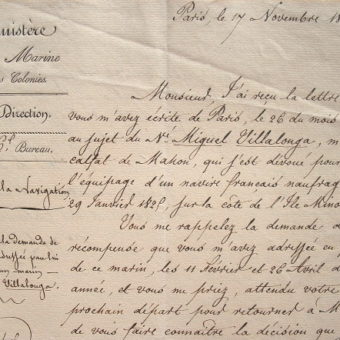 Ministère
Marine
Colonies.
Direction.
Bureau.
la Navigation
la demande de
Villalonga.
Paris, le 17 Novembre 18
Monsieur, J'ai reçu la lettre
vous m'avez écrite de Paris, le 26 du mois
au sujet du Nᵉ Miguel Villalonga, m
calfat de Mahon, qui s'est dévoué pour
l'équipage d'un navire français naufrag
29 Janvier 182 , sur la côte de l'Ile Mino
Vous me rappelez la demande d
récompense que vous m'avez adressée en
de ce marin, les 11 Février et 26 Avril d
année, et vous me priez, attendu votre
prochain départ pour retourner à M
de vous faire connaître la décision que